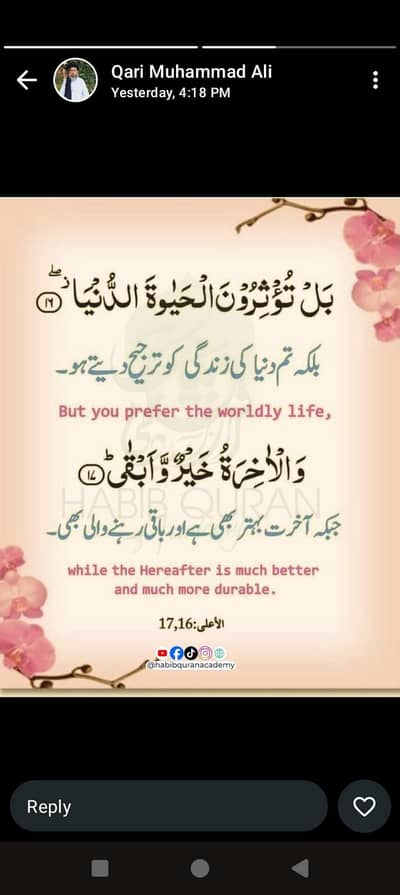 Qari Muhammad Ali
Yesterday, 4:18 PM
بَلْ تُؤْثِرُوْنَ الْحَيٰوةَ الدُّنْيَا ۖ ۟ ﴿۱۶﴾
بلکہ تم دنیا کی زندگی کو ترجیح دیتے ہو۔
But you prefer the worldly life,
وَالْاٰخِرَةُ خَيْرٌ وَّاَبْقٰى ؕ ﴿۱۷﴾
HABIB QURAN
جبکہ آخرت بہتر بھی ہے اور باقی رہنے والی بھی۔
while the Hereafter is much better
and much more durable.
الأعلى:17,16
@habibquranacademy
Reply